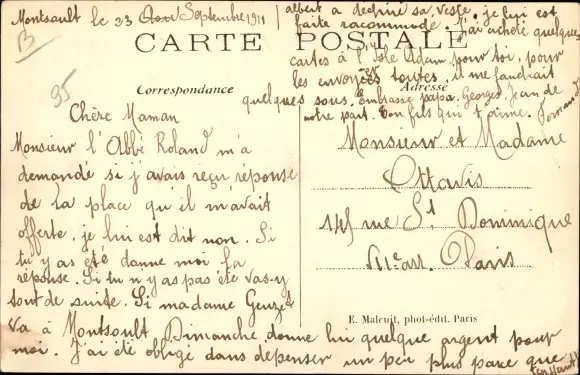 Montsoult le 23 Août Septembre 1911
B
95
CARTE POSTALE
Correspondance
Adresse
Chère Maman
Monsieur l'Abbé Roland m'a
demandé si j'avais reçu réponse
de la place qu'il m'avait
offerte. je lui est dit non. Si
tu y as été donne moi la
réponse. Si tu n'y as pas été vas-y
tout de suite. Si madame Geuzet
va à Montsoult Dimanche donne lui quelque argent pour
moi. J'ai été obligé dans dépenser un peu plus parce que
(en Haut)
albert a déchiré sa veste. je lui est
faite racommodé. J'ai acheté quelques
cartes à l'Isle Adam pour toi, pour
les envoyées toutes, il me faudrait
quelques sous. Embrasse papa. Georges Jean de
notre part. Ton fils qui t'aime. Fernand
Monsieur et Madame
Ottavis
145 rue St Dominique
VIIe arr. Paris
E. Maleuit, phot-édit. Paris